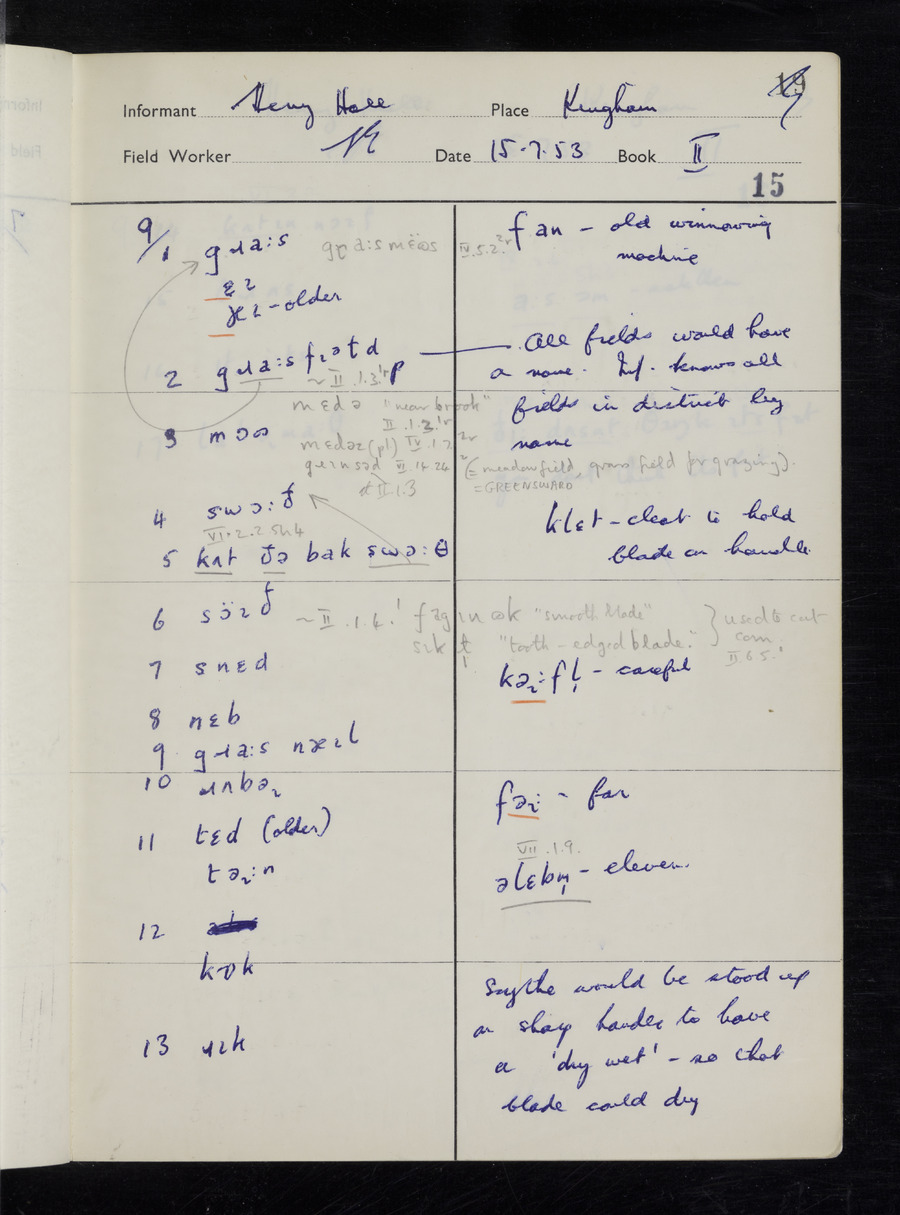 Informant Henry Hall Place Kingham
19
Field Worker Date 15.7.53 Book II
15
9/1 gɹa:s
ɛɪ
æɪ - older
2 gɹa:sfɪətd p
~ II .1.3.
mɛdə "near brook"
II.1.3.
3 mɔʊ
mɛdəz (pl) IV.1.2
VI.14.24
II.1.3
4 swɔ:ð
VI.2.2 Sh4
5 kʌt ðə bak swɔ:θ
6
~ II .1.4.
7 snɛd
8 nɛb
9 gɹa:s
10 ɹʌbəɹ
11 tɛd (older)
təɹ:n
12
kʊk
13 ɹɪk
IV.5.2.
fan - old winnowing
machine
All fields would have
a name. Inf. knows all
fields in district by
name
(= meadowfield, grass field for grazing).
= GREENSWARD
klɛt - cleat to hold
blade on handle
"smooth blade"
"tooth-edged blade." } used to cut
corn
II 6 5.
kəɹ:fl̩ - careful
fəɹ: - far
VII .1.9.
əlɛbm̩ - eleven.
Scythe would be stood up
on sharp handle to have
a 'dry wet' - so that
blade could dry